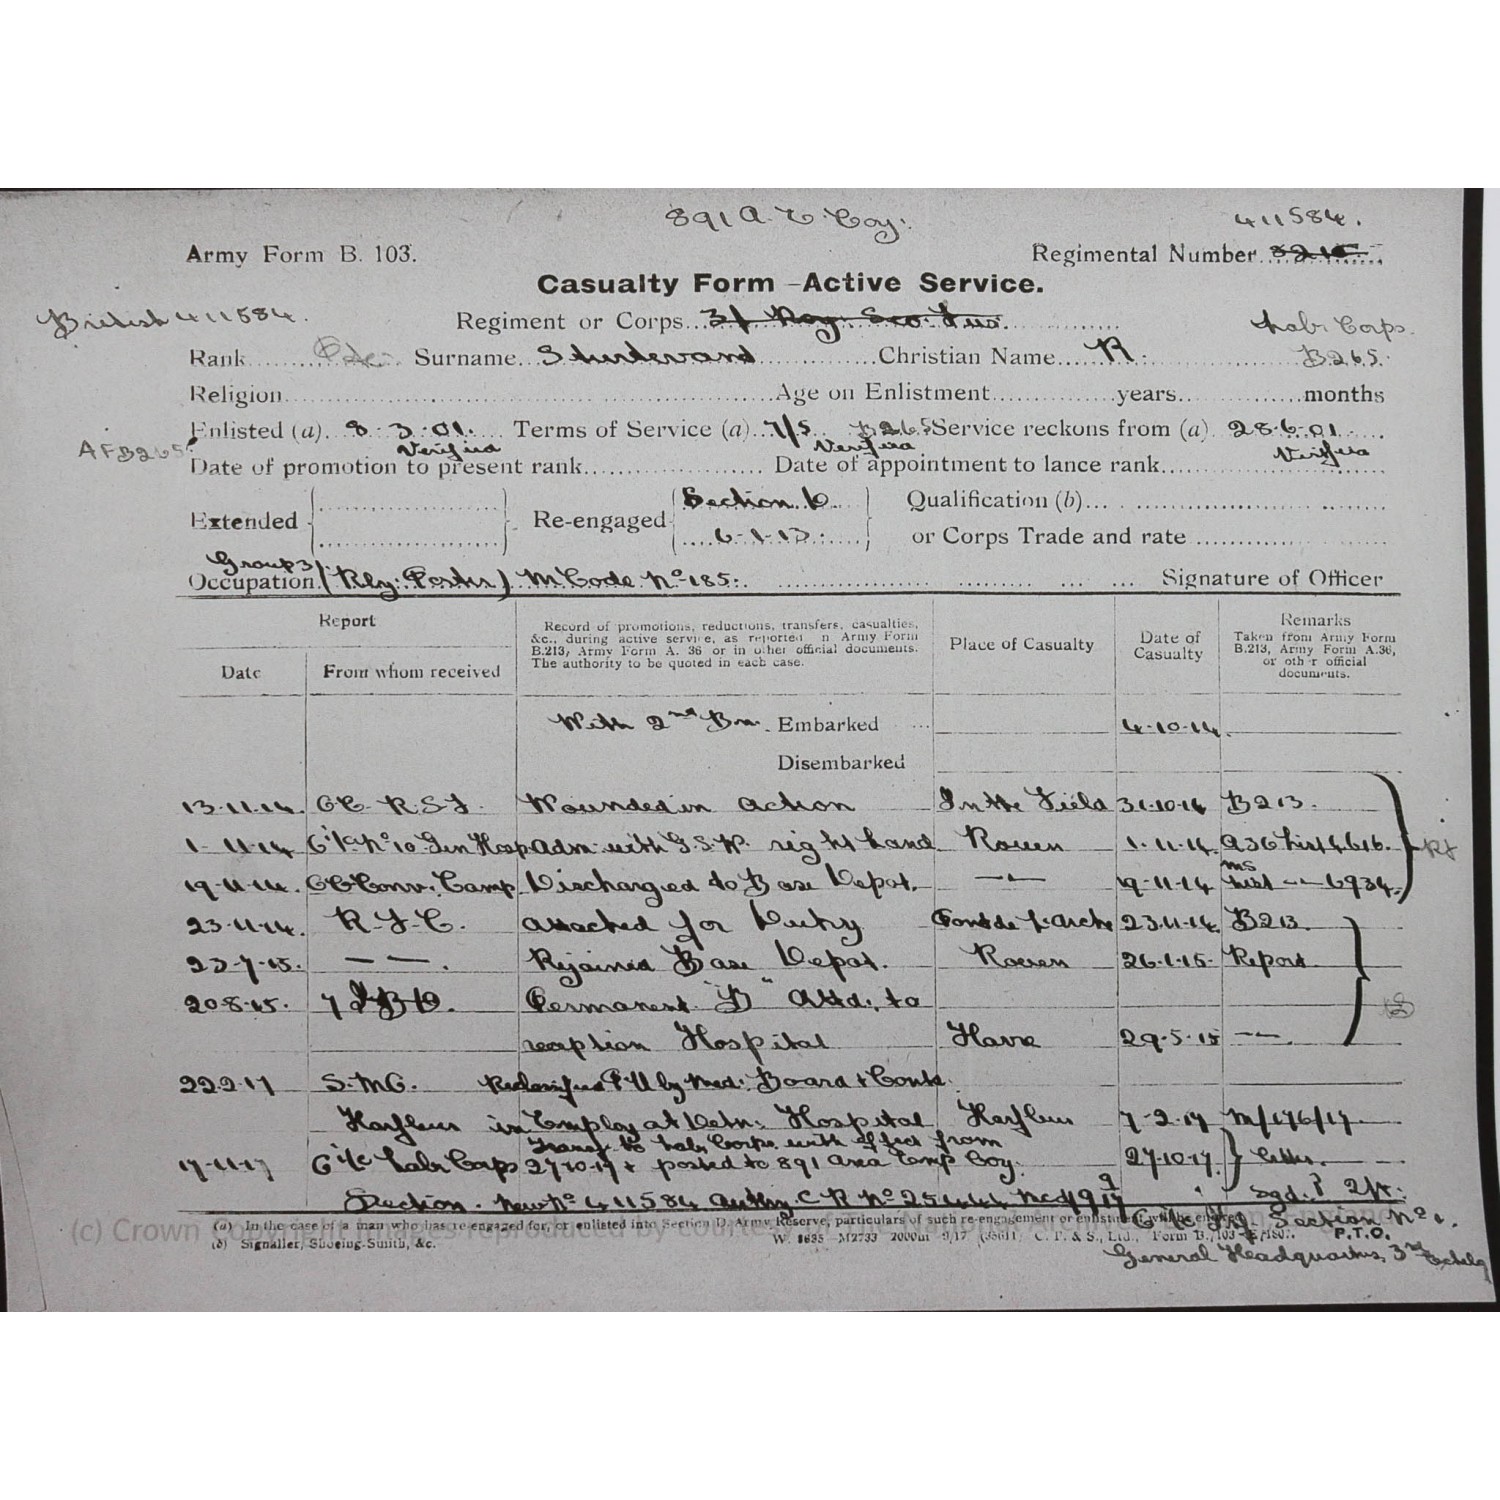 891 A. E. Coy:
411584.
Army Form B. 103.
Regimental Number
Casualty Form - Active Service.
British 411584.
Regiment or Corps Roy: Sco: Fus.
Labr Corps.
Rank Pte. Surname Sturtevand Christian Name R. B265.
Religion Age on Enlistment years months
AFB265
Enlisted (a) 8.3.01. Terms of Service (a) 7/5 B265 Service reckons from (a) 28.6.01.
Verified Verified Verified
Date of promotion to present rank Date of appointment to lance rank
Extended Re-engaged Section D 6-1-13. Qualification (b)
or Corps Trade and rate
Group 3
Occupation (Rly: Porter) M Code No 185. Signature of Officer
Report
Date
From whom received
Record of promotions, reductions, transfers, casualties,
&c., during active service, as reported in Army Form
B.213, Army Form A. 36 or in other official documents.
The authority to be quoted in each case.
Place of Casualty
Date of
Casualty
Remarks
Taken from Army Form
B.213, Army Form A.36,
or other official
documents.
With 2nd Bn. Embarked 4-10-14.
Disembarked
13-11-14. OC R.S.F. Wounded in Action In the Field 31-10-14 B213.
1-11-14 O i/c No 10 Gen Hosp. Adm: with G.S.W. right hand Rouen 1-11-14. A36 List 4616.
19-11-14. OC Conv. Camp Discharged to Base Depot. —"— 19-11-14 List —"— 6934.
23-11-14. R.F.C. Attached for Duty Pont de L'Arche 23-11-14 B213.
23-7-15. — — . Rejoined Base Depot. Rouen 26-1-15 Report
20-8-15. 7 I.B.D. Permanent "B" Attd. to
reception Hospital Havre 29-5-15 —"—.
22-2-17 S.M.O. Reclassified P.U by Med: Board & Contd.
Harfleur in Employ at Detn: Hospital Harfleur 7-2-17 M/176/17.
Transf. to Labr Corps with effect from
17-11-17 O i/c Labr Corps 27-10-17 & posted to 891 Area Emp Coy. 27-10-17. Letter.
Section. New No 411584 Authy. C R No
Sgd. ? 2/Lt:
(a) In the case of a man who has re-engaged for, or enlisted into Section D. Army Reserve, particulars of such re-engagement or enlistment will be entered.
(b) Signaller, Shoeing-Smith, &c.
W. 8635—M2733 2000m 9/17 C. P. & S., Ltd., Form B./103
Section No 1.
P.T.O.
General Headquarters, 3rd Echelon
(c) Crown Copyright Images reproduced by courtesy of The National Archives, London, England